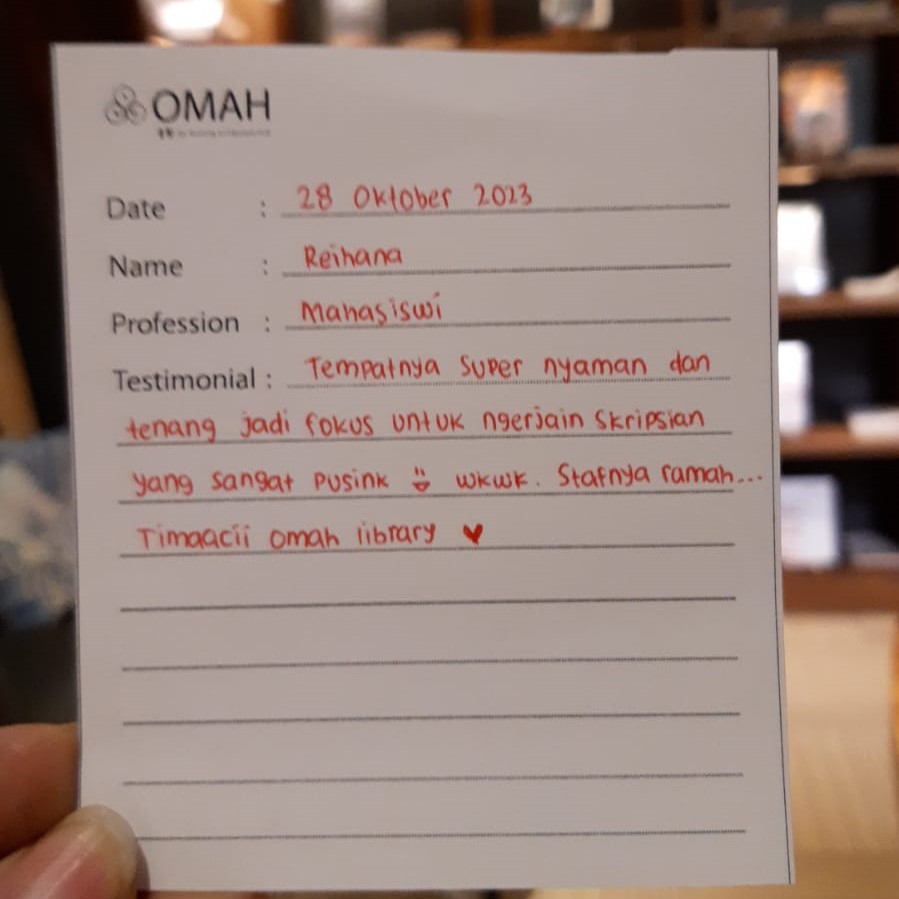 OMAH
Date : 28 Oktober 2023
Name : Reihana
Profession : Mahasiswi
Testimonial : Tempatnya super nyaman dan
tenang jadi fokus untuk ngerjain skripsian
yang sangat pusink wkwk. Stafnya ramah...
Timaacii omah library ♥